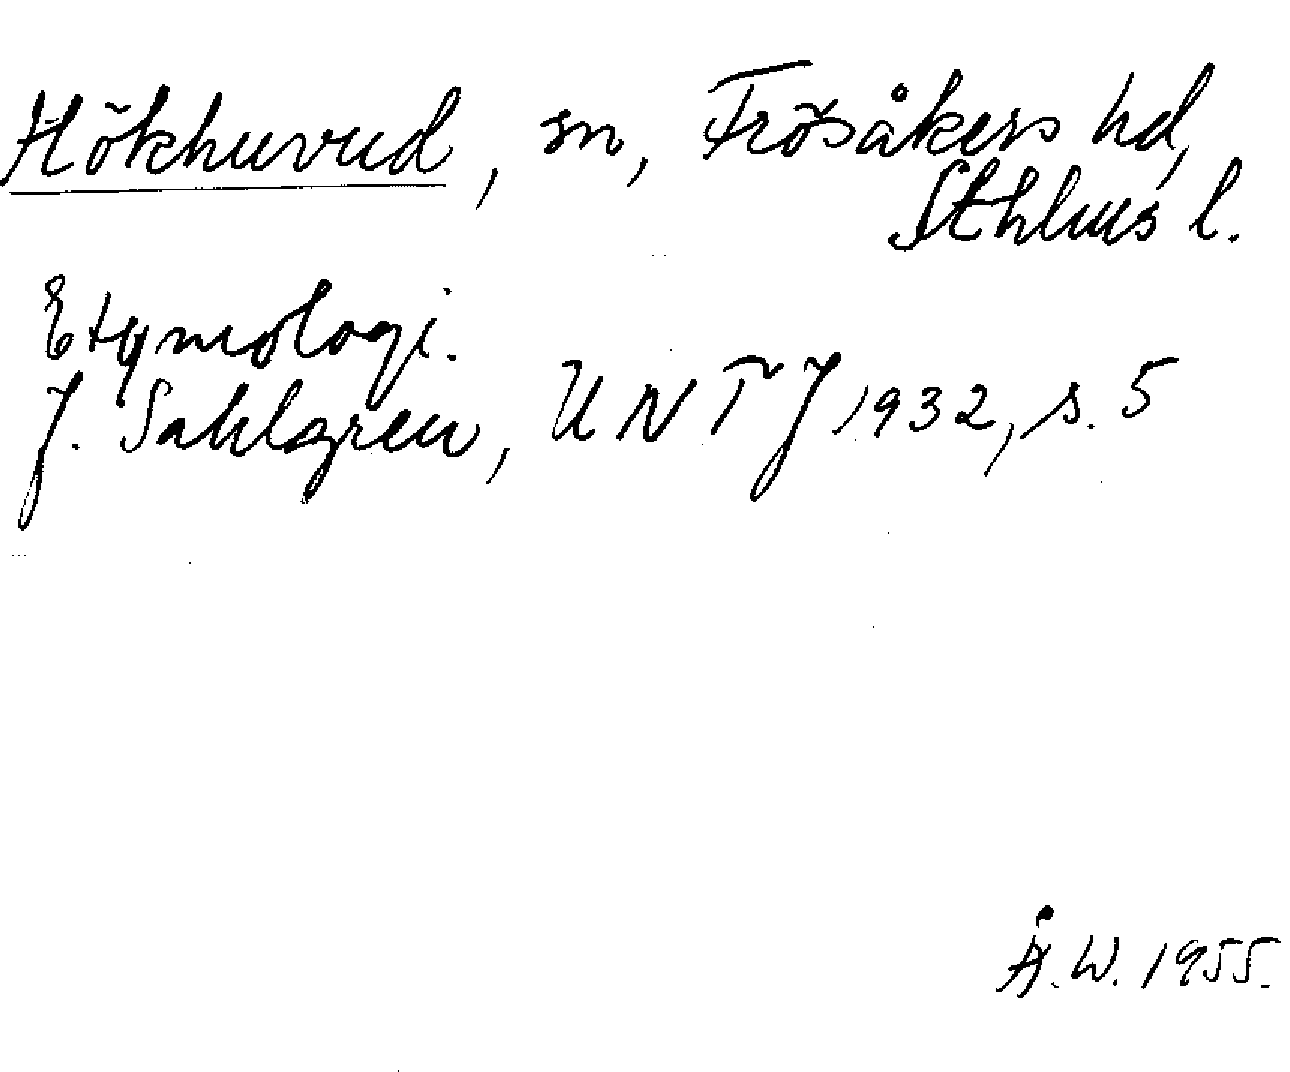 Hökhuvud, sn, Frösåkers hd,
Sthlms l.
Etymologi.
J. Sahlgren, UNT J 1932, s. 5
Å.W. 1955.